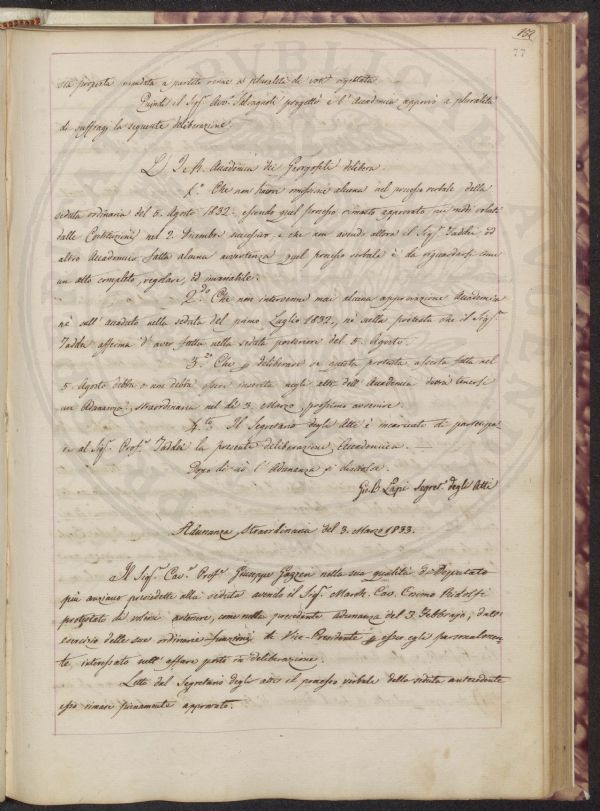 152
77
sta proposta mandata a partito venne a pluralità di voti rigettata.
Quindi il Sig.r Avv.o Salvagnoli progettò e l'Accademia approvò a pluralità
di suffragi la seguente deliberazione.
L'I. e R. Accademia dei Georgofili delibera
1.o Che non havvi omissione alcuna nel processo verbale della
seduta ordinaria del 5. Agosto 1832. essendo quel processo rimasto approvato nei modi voluti
dalle Costituzioni nel 2. Dicembre successivo e che non avendo allora il Sig.r Taddei, ed
altro Accademico fatta alcuna avvertenza quel processo verbale è da riguardarsi come
un atto completo, regolare, ed invariabile.
2.do Che non intervenne mai alcuna approvazione Accademica
nè sull'accaduto nella seduta del primo Luglio 1832., nè sulla protesta che il Sig.r
Taddei afferma d'aver fatta nella seduta posteriore del 5. Agosto.
3.zo Che p deliberare se questa protesta asserta fatta nel
5. Agosto debba o non debba essere inserita negli atti dell'Accademia dovrà tenersi
un Adunanza straordinaria nel dì 3. Marzo prossimo avvenire.
4.to Il Segretario degli Atti è incaricato di partecipa
re al Sig.r Prof.r Taddei la presente deliberazione Accademica.
Dopo di ciò l'Adunanza si discioglie.
Gio.B. Lapi Segret.o degli Atti
Adunanza straordinaria del 3. Marzo 1833.
Il Sig.r Cav.r Prof.r Giuseppe Gazzeri nella sua qualità di Deputato
più anziano presiedette alla seduta avendo il Sig.r March. Cav. Cosimo Ridolfi
protestato di volersi astenere come nella precedente adunanza del 3. Febbrajo, dall'
esercizio delle sue ordinarie funzioni di Vice-Presidente p esser egli personalmen-
te interessato nell'affare posto in deliberazione.
Letto dal Segretario degli atti il processo verbale della seduta antecedente
esso rimase pienamente approvato.